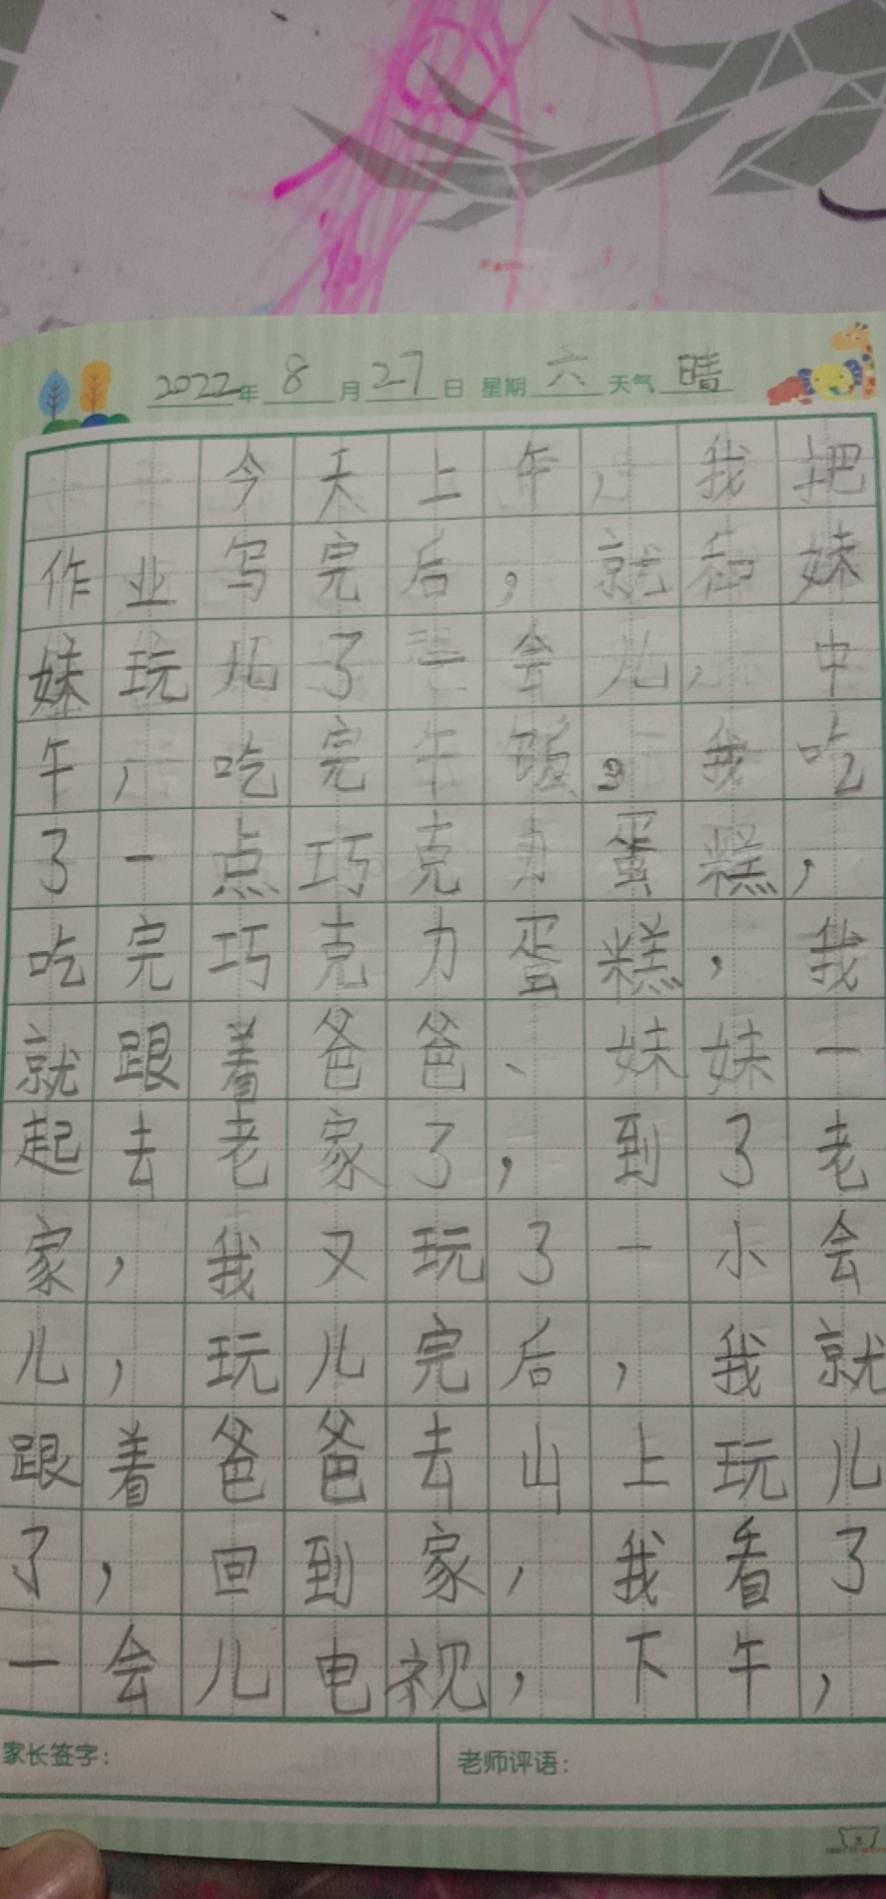 2022年8月27日 星期六天气晴
今天上午,我把
作业写完后,就和妹
妹玩儿了一会儿,中
午,吃完午饭,我吃
了一点巧克力蛋糕,
吃完巧克力蛋糕,我
就跟着爸爸、妹妹一
起去老家了,到了老
家,我又玩了一小会
儿,玩儿完后,我就
跟着爸爸去山上玩儿
了,回到家,我看了
一会儿电视,下午,
家长签字:
老师评语: